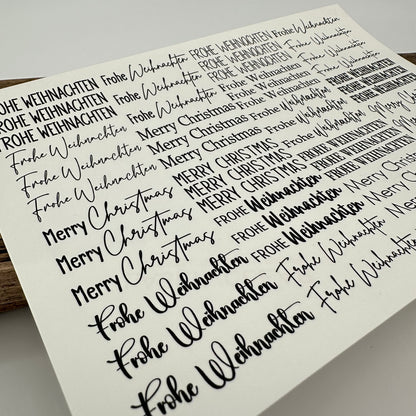 FROHE WEIHNACHTEN Frohe Weihnachten FROHE WEIHNACHTEN Frohe Weihnachten
FROHE WEIHNACHTEN Frohe Weihnachten FROHE WEIHNACHTEN Frohe Weihnachten
FROHE WEIHNACHTEN Frohe Weihnachten FROHE WEIHNACHTEN
Frohe Weihnachten Merry Christmas Frohe Weihnachten
Frohe Weihnachten Merry Christmas Frohe Weihnachten
Frohe Weihnachten Merry Christmas Frohe Weihnachten
Merry Christmas MERRY CHRISTMAS FROHE WEIHNACHTEN
Merry Christmas MERRY CHRISTMAS FROHE WEIHNACHTEN
Merry Christmas MERRY CHRISTMAS FROHE WEIHNACHTEN
FROHE Weihnachten Merry Christmas
FROHE Weihnachten
FROHE Weihnachten
Frohe Weihnachten Frohe Weihnachten
Frohe Weihnachten Frohe Weihnachten
Frohe Weihnachten